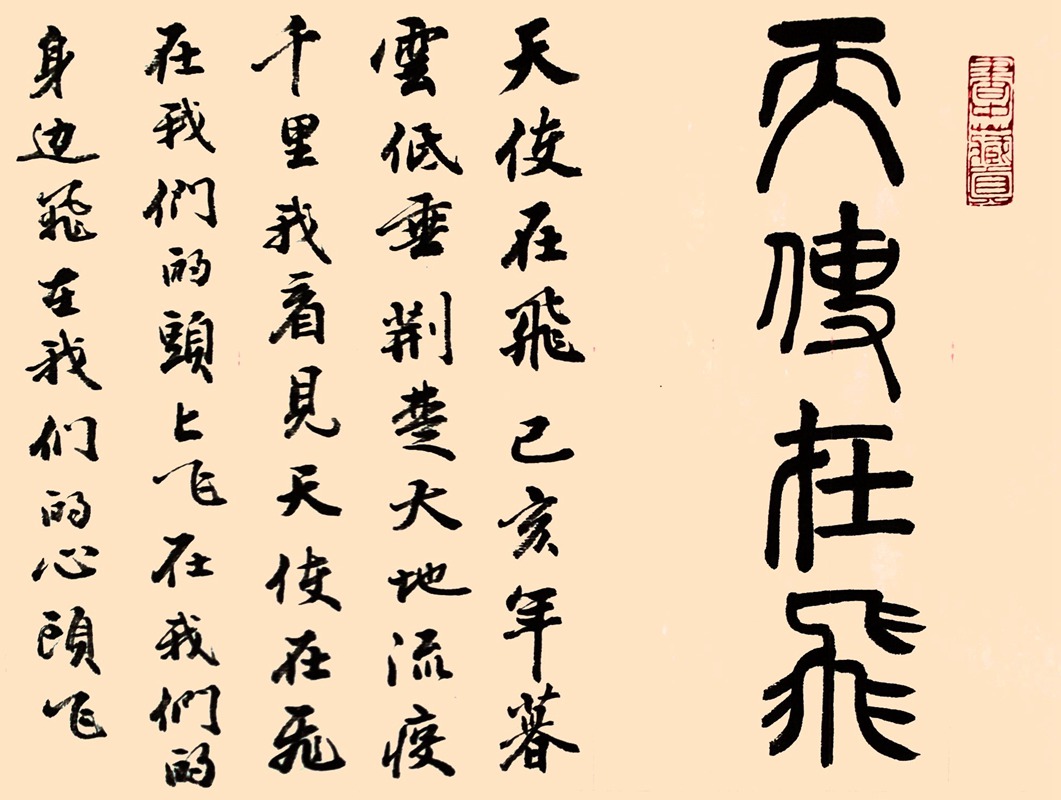 天使在飛
天使在飛己亥年暮
雲低垂荆楚大地流疫
千里我看見天使在飛
在我們的頭上飞在我們的
身边飛在我们的心頭飞